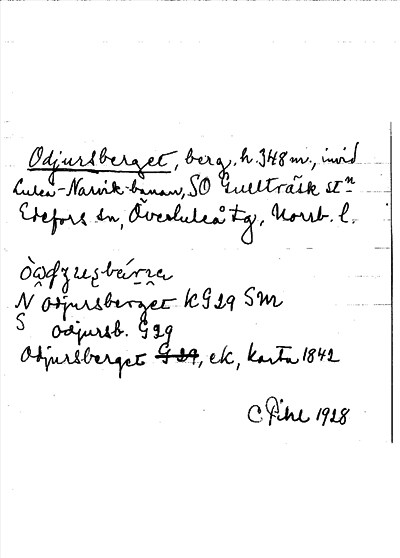 Odjursberget, berg, h. 348 m., invid
Luleå-Narvik-banan, SO Gullträsk stn
Edefors sn, Överluleå tg, Norrb. l.
N Odjursberget KG29 SM
S odjursb. G29
Odjursberget G 29, ek, karta 1842
C Pihl 1928